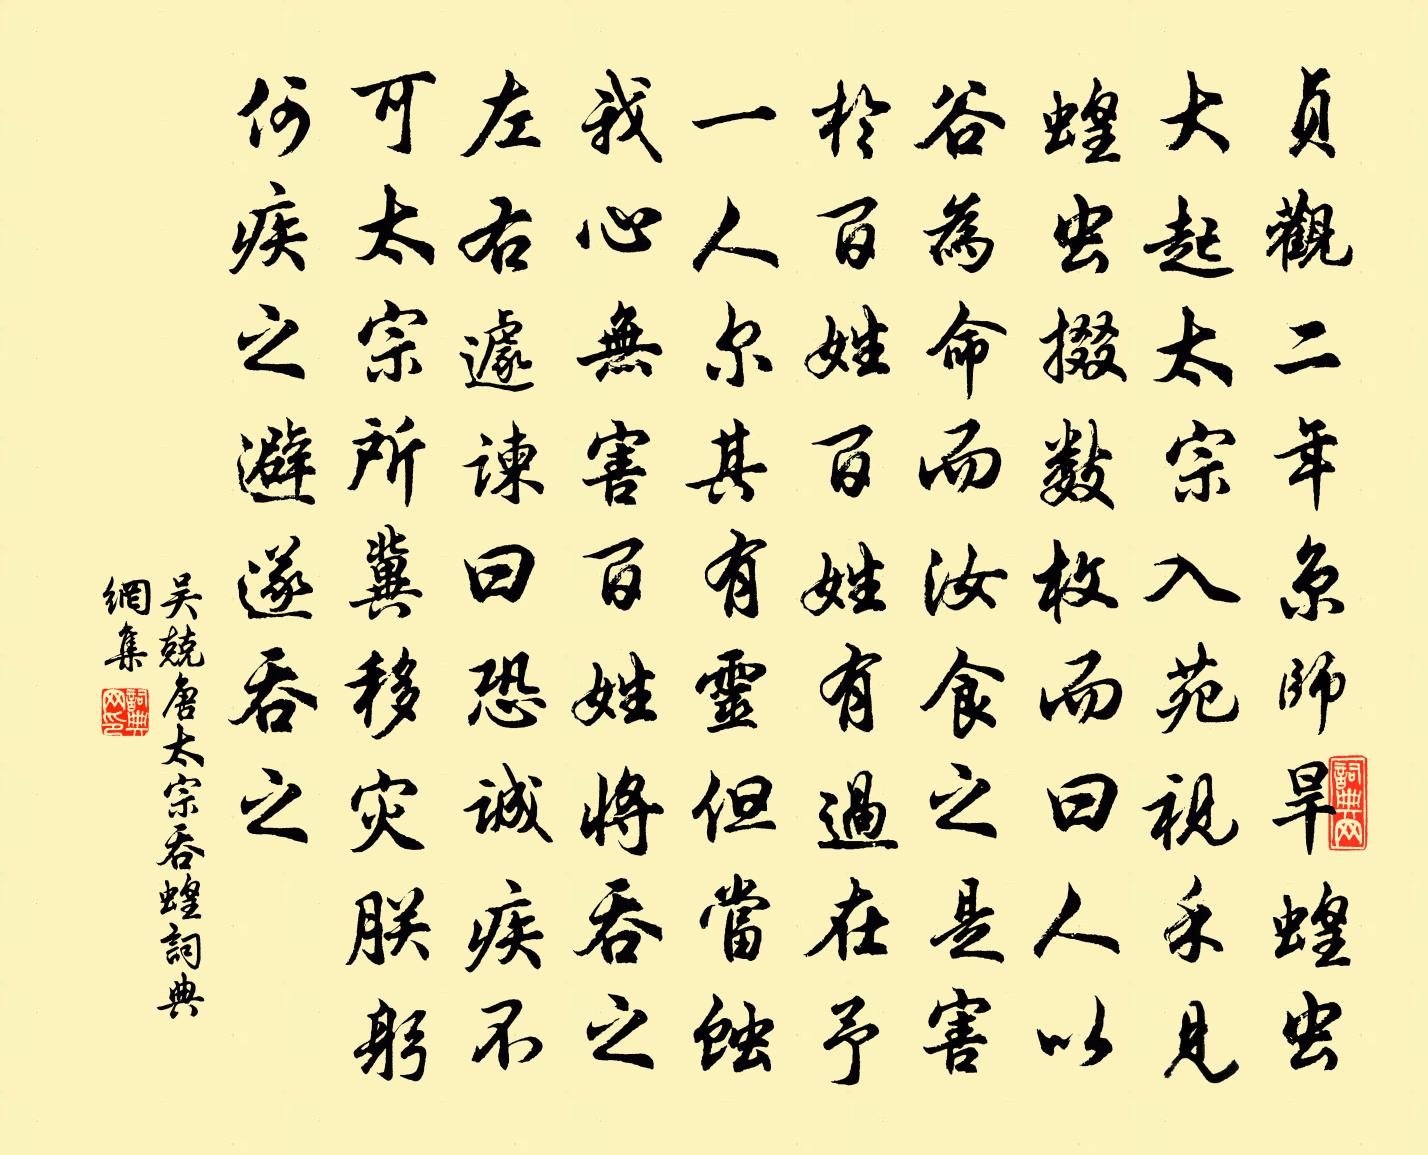 貞觀二年京師旱蝗虫
大起太宗入苑視禾見
蝗虫掇数枚而曰人以
谷為命而汝食之是害
於百姓百姓有過在予
一人尔其有靈但當蝕
我心無害百姓將吞之
左右遽諫曰恐誠疾不
可太宗所冀移灾朕躬
何疾之避遂吞之
吴兢唐太宗吞蝗詞典
網集
詞典网
詞典网印